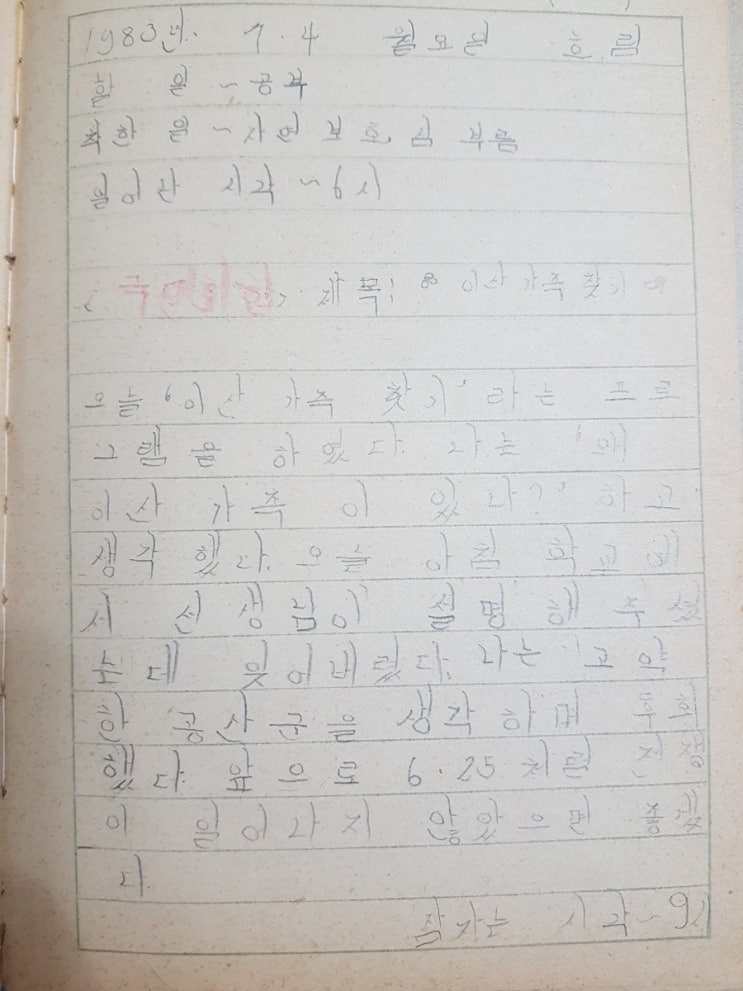 1983년. 7.4 월요일 흐림
한 일 ~ 공부
착한 일 ~ 자연 보호, 심부름
일어난 시각 ~ 6시
제목: 이산 가족 찾기
오늘 '이산 가족 찾기' 라는 프로
그램을 하였다. 나는 '왜
이산 가족이 있나?' 하고
생각했다. 오늘 아침 학교에
서 선생님이 설명해 주셨
는데 잊어버렸다. 나는 고약
한 공산군을 생각하면
했다. 앞으로 6.25 처럼 전쟁
이 일어나지 않았으면 좋겠
다.
잠자는 시각 ~ 9시